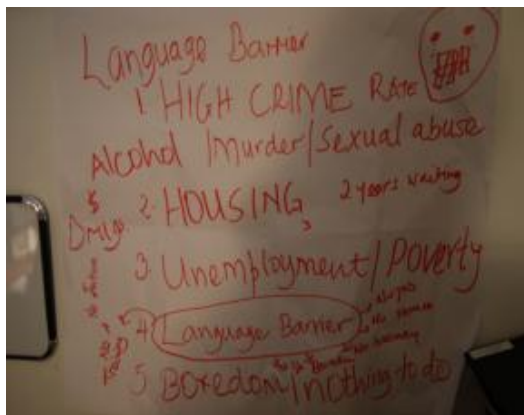 Language Barrier
1 HIGH CRIME RATE
Alcohol /Murder/Sexual abuse
&
Drugs
2. HOUSING, 2 years waiting
3. Unemployment/Poverty
4 Language Barrier
No jobs
5. Boredom/nothing to do